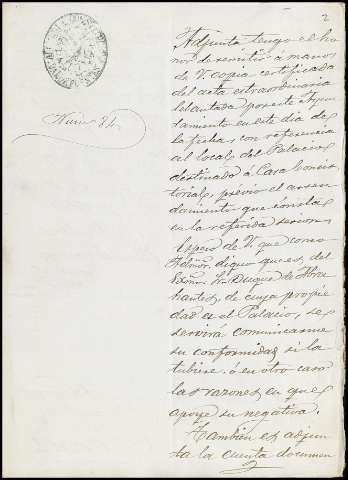 2
Núm 84
Adjunta tengo el ho
nor de remitir á manos
de V. copia certificada
del acta extraordinaria
lebantada por este Ayun
tamiento en este dia de
la fecha, con referencia
al local del Palacio
destinado á Casa Consis
torial, previo el arren
damiento que consta
en la referida sesion.
Espero de V. que como
digno que es, del
Duque de Abra
hantes, de cuya propie
dad es el Palacio, se
servirá comunicarme
su conformidad si la
tubiere, ó en otro caso
las razones, en que
apoye su negativa.
Tambien es adjun
ta la cuenta documen